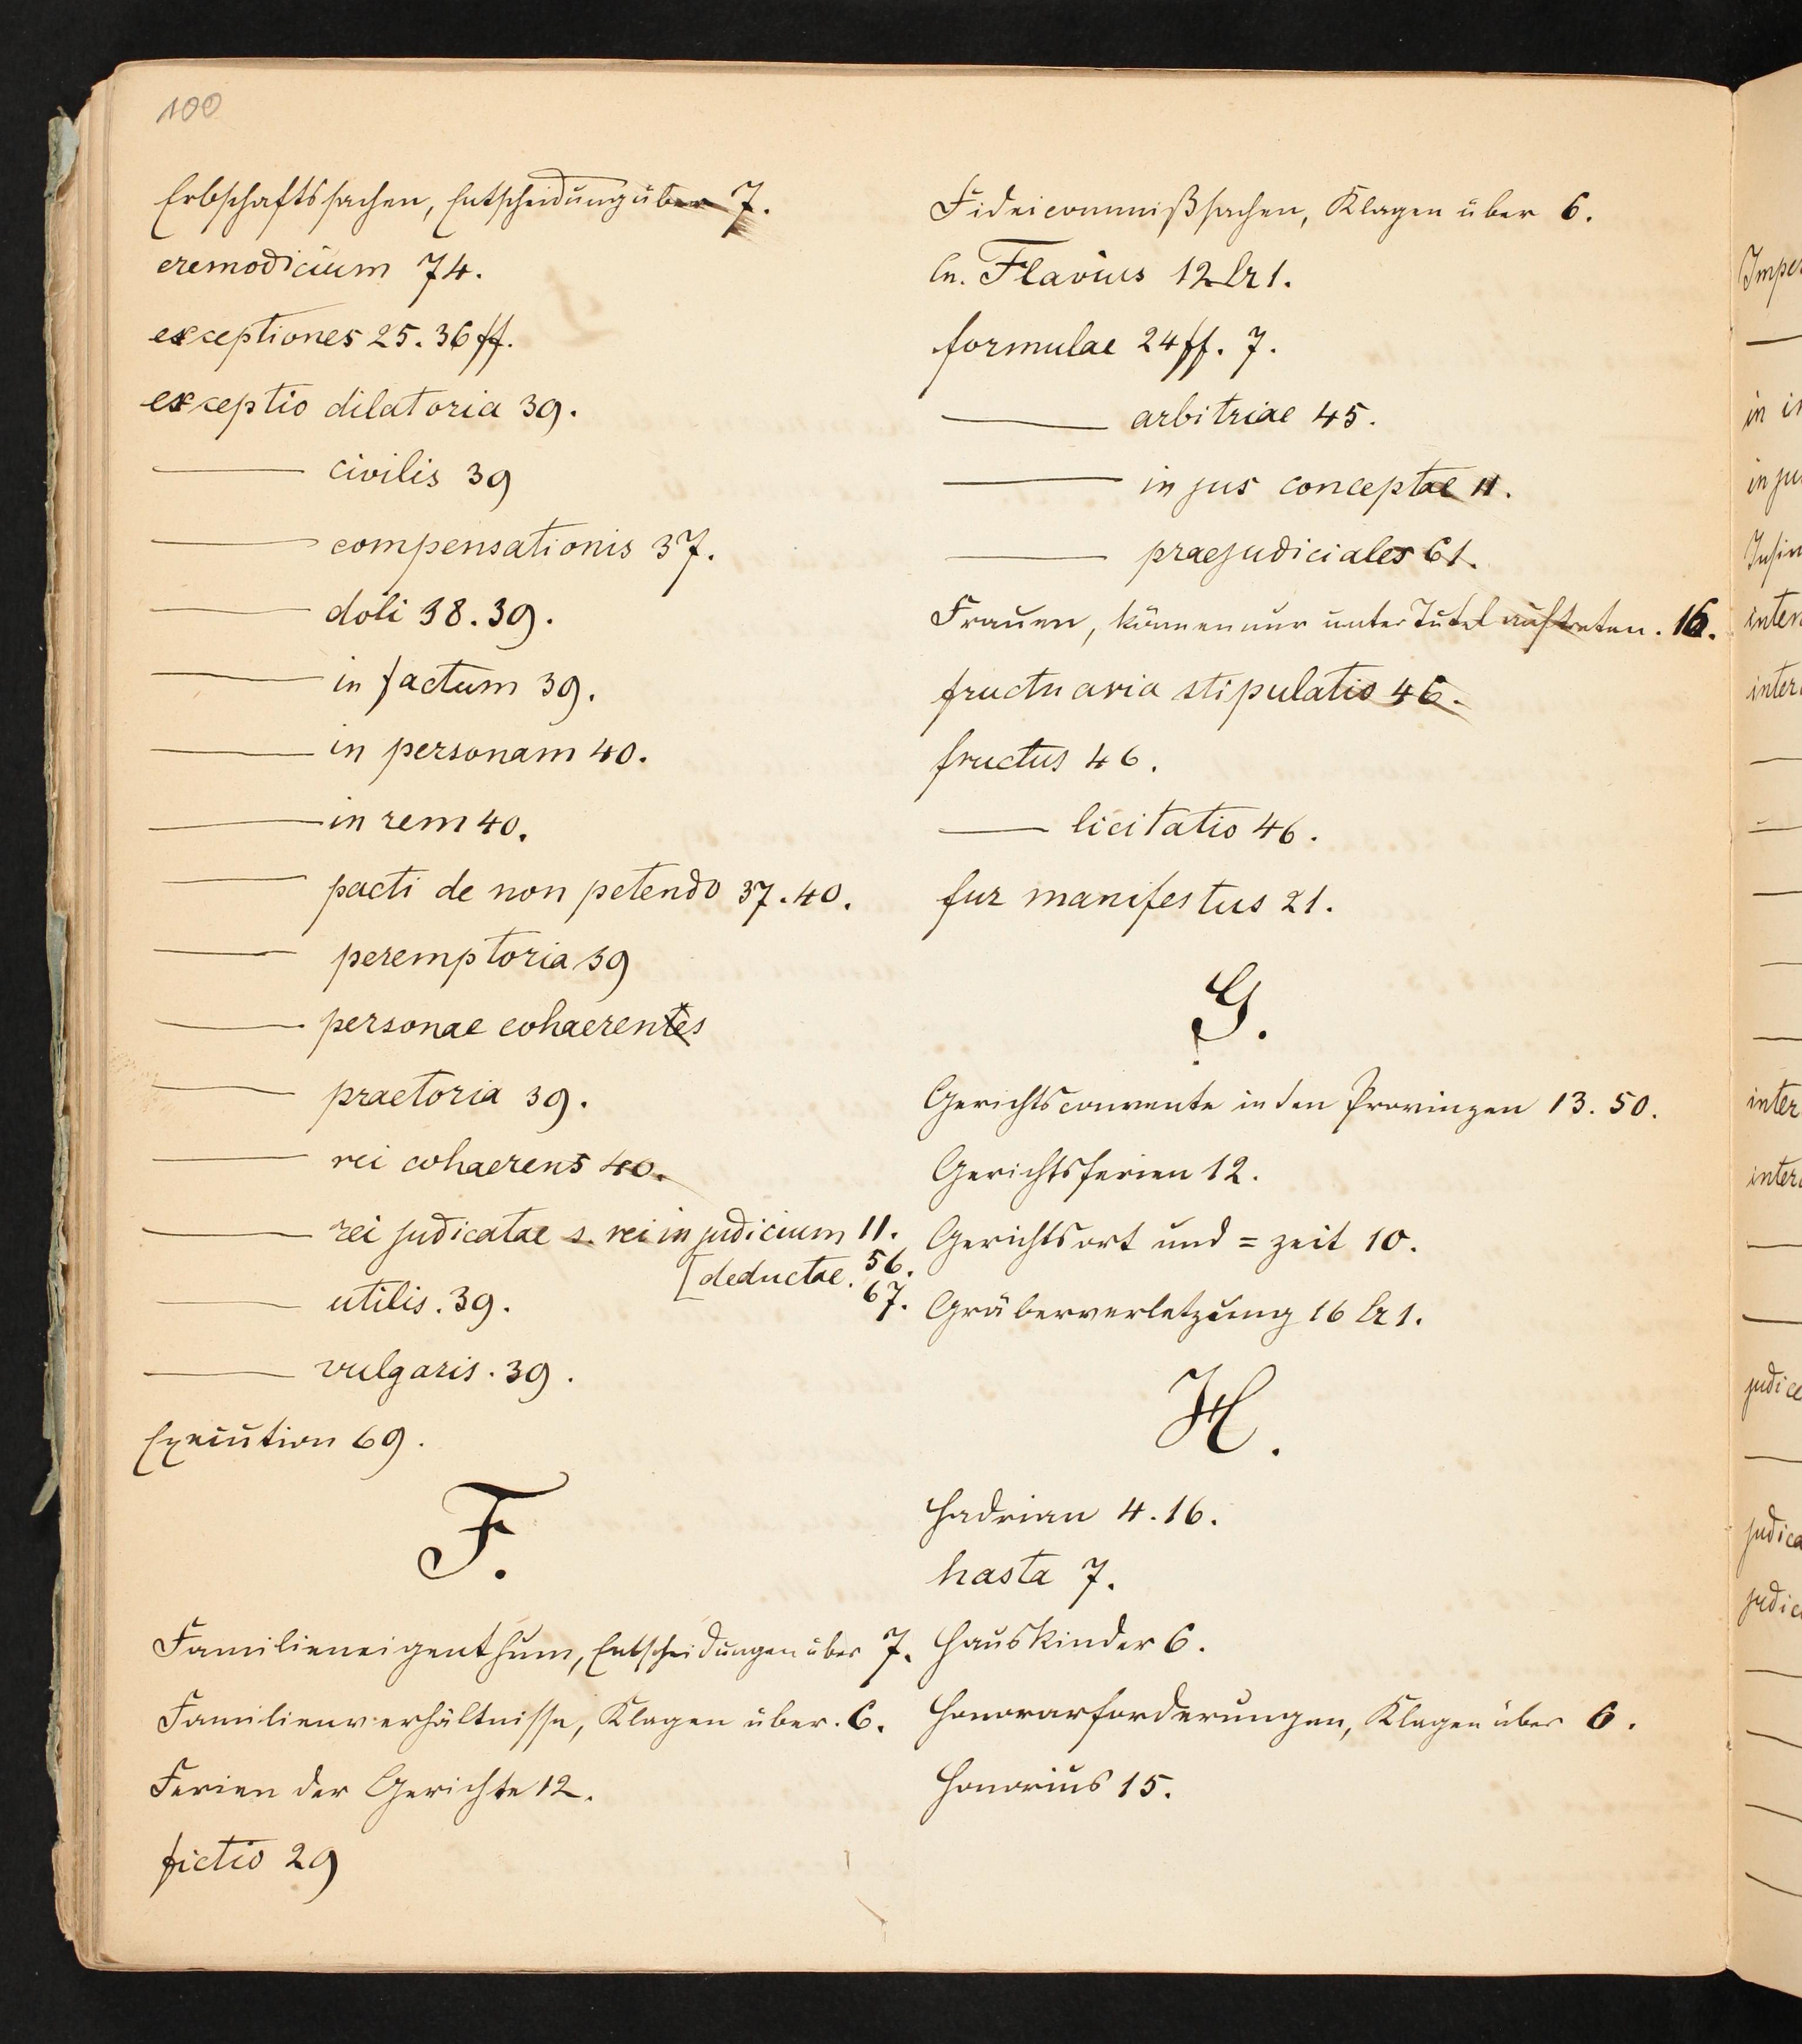 100
Erbschaftssachen, Entscheidung über 7.
eremodicium 74.
exceptiones 25. 36 ff.
exceptio dilatoria 39.
—— civilis 39
—— compensationis 37.
—— doli 38. 39.
—— in factum 39.
—— in personam 40.
—— in rem 40.
—— pacti de non petendo 37. 40.
—— peremptoria 39
—— personae cohaerentes
—— praetoria 39.
—— rei cohaerens 40.
—— rei judicatae s. rei in judicium 11.
[deductae. 56.
67.
—— utilis. 39.
—— vulgaris. 39.
Execution 69.
F.
Familieneigenthum, Entscheidungen über 7.
Familienverhältnisse, Klagen über. 6.
Ferien der Gerichte 12.
fictio 29
Fideicommißsachen, Klagen über 6.
Cn. Flavius 12 1.
formulae 24 ff. 7.
—— arbitriae 45.
—— in jus conceptae 11.
—— praejudiciales 61.
Frauen, können nur unter Tutel auftreten. 16.
fructuaria stipulatio 46.
fructus 46.
—— licitatio 46.
fur manifestus 21.
G.
Gerichtsconvente in den Provinzen 13. 50.
Gerichtsferien 12.
Gerichtsort und = zeit 10.
Gräberverletzung 16 1.
H.
Hadrian 4. 16.
hasta 7.
Hauskinder 6.
Honorarforderungen, Klagen über 6.
Honorius 15.